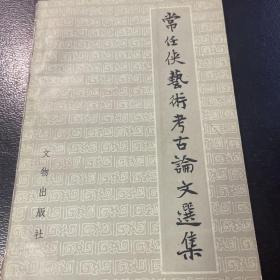 常任俠藝術考古論文選集
文物出版社